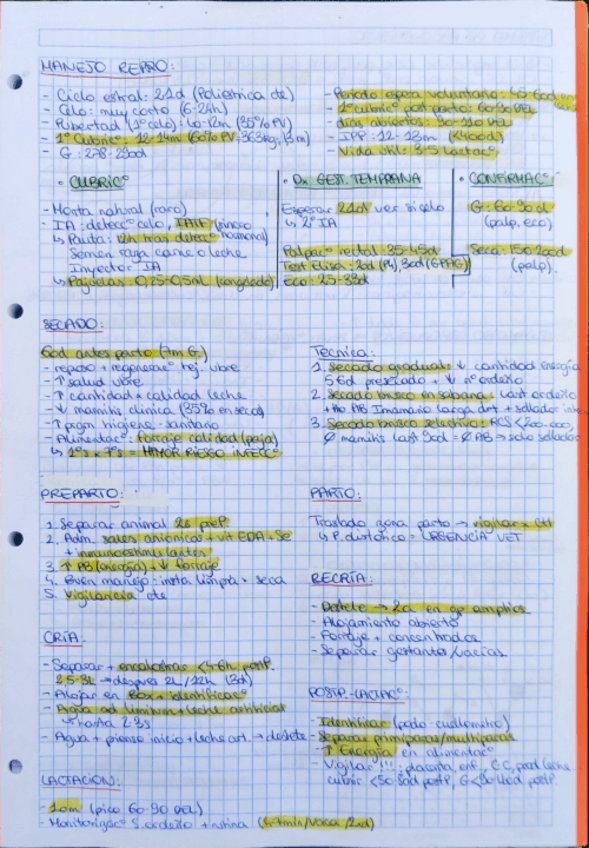 MANEJO REPRO:
- Ciclo estral: 21d (Poliestrica cte)
- Celo: muy corto (6-24h)
- Pubertad (1º celo): 10-12m (35% PV)
- 1º Cubricº: 12-14m (60% PV, 363kg, 13m)
- G: 278-290d
- Periodo espera voluntario: 45-60d
- 1º cubricº post-parto: 60-90 DEL
- días abiertos: 90-110 DEL
- IPP: 12-13m (<400d)
- Vida útil: 3-5 lactacº
• CUBRICº
- Monta natural (raro)
- IA: deteccº celo, IATF (sincro
↳ Pauta: 12h tras deteccº hormonal)
Semen raza carne o leche
Inyector IA
↳ Pajuelas: 0,25-0,5ml (congelado)
• Dx GEST. TEMPRANA
Esperar 21d ver si celo
↳ 2º IA
Palpacº rectal: 35-45d
Test Elisa: 20d (P4), 30d (GPAG)
eco: 25-35d
• CONFIRMACº
G: 60-90d
(palp. eco)
Seca: 150-200d
(palp).
SECADO:
60d antes parto (7m G.)
- reposo + regeneracº tej. ubre
- ↑ salud ubre
- ↑ cantidad + calidad leche
- ↓ mamitis clínica (35% en secas)
- ↑ prgm higiene-sanitario
- Alimentacº: forraje calidad (paja)
↳ 1ªs + 7ªs = MAYOR RIESGO INFECCº
Técnica:
1. Secado gradual: ↓ cantidad energía
5-6d presecado + ↓ nº ordeño
2. Secado brusco en sabana: last ordeño
+ tto AB Imamario larga durº + sellador
3. Secado brusco selectivo: RCS <200.000,
Ø mamitis last 90d = Ø AB → solo sellador
PREPARTO:
1. Separar animal 2s preP.
2. Adm. sales aniónicas + vit EDA + Se
+ inmunoestimulantes
3. ↑ PB (energía) + ↓ forraje
4. Buen manejo: insta limpia + seca
5. Vigilancia cte
PARTO:
Traslado zona parto → vigilar
↳ P. distócico = URGENCIA VET
RECRÍA:
- Destete → 2a en gp amplios
- Alojamiento abierto
- Forraje + concentrados
- Separar gestantes/vacías
CRÍA.
- Separar + encalostrar <4-6h postP.
2.5-3L → después 2L/12h (3d)
- Alojar en Box + Identificacº
- Agua ad libitum + leche artificial
↳ hasta 2-3s
- Agua + pienso inicio + leche art. → destete
POSTP.-LACTACº:
- Identificar (podo-cuellometro)
- Separar primíparas/multíparas
- ↑ Energía en alimentacº
- Vigilar!!!: placenta, enf., CC, prod leche
cubric <50-80d postP, G <90-110d postP.
LACTACIÓN:
- 10m (pico 60-90 DEL)
- Monitorizacº S. ordeño + rutina (6-7min/vaca/2xd)